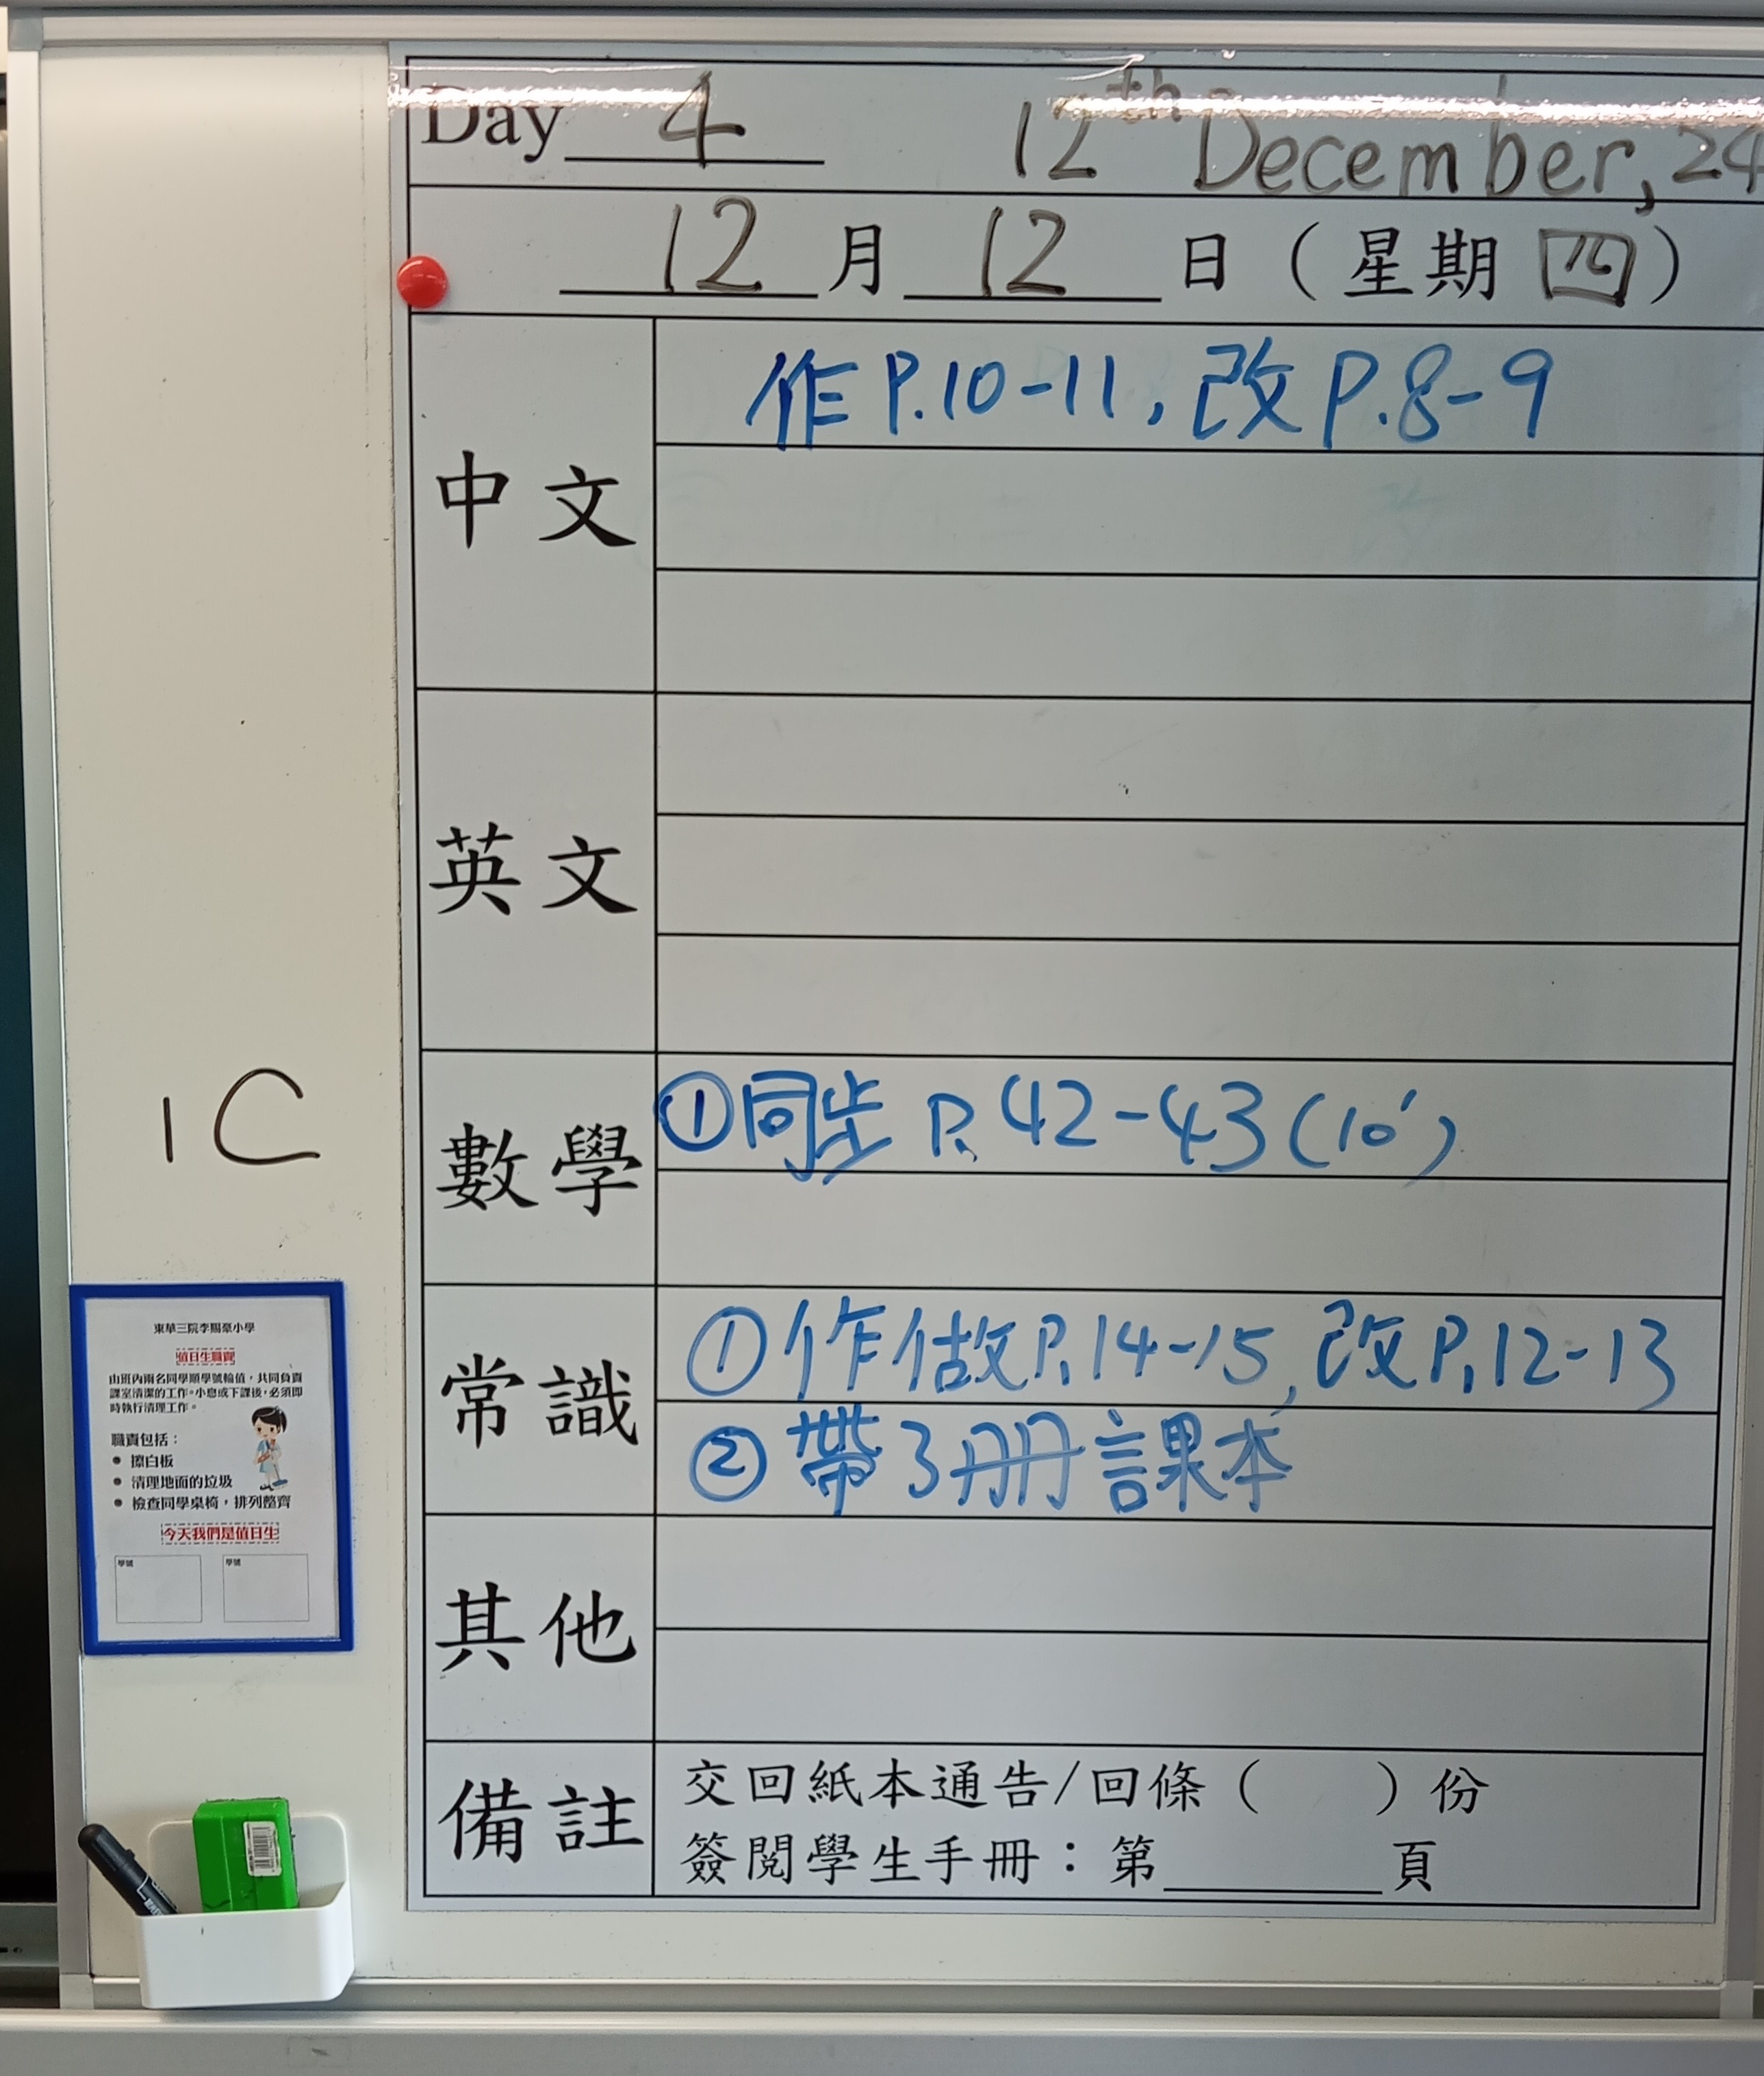 Day 4 12th December, 24
12 月 12 日（星期 四）
中文
作P.10-11, 改P.8-9
英文
數學
①同步 P.42-43(10')
常識
①作做P.14-15, 改P.12-13
②帶3冊課本
其他
備註
交回紙本通告/回條（ ）份
簽閱學生手冊：第 頁
1C
東華三院李賜豪小學
值日生職責
由班內兩名同學順學號輪值，共同負責
課室清潔的工作。小息或下課後，必須即
時執行清理工作。
職責包括：
• 擦白板
• 清理地面的垃圾
• 檢查同學桌椅，排列整齊
今天我們是值日生
學號 學號